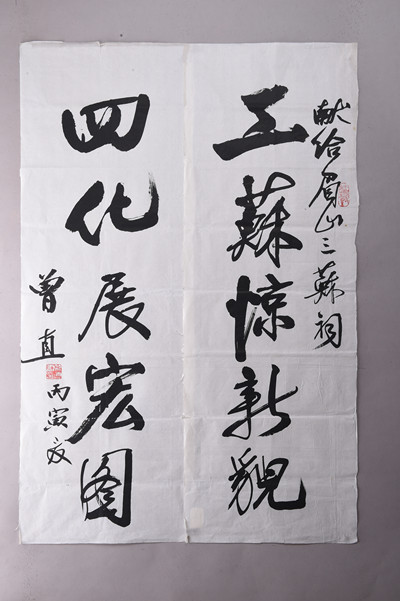 献给眉山三苏祠
三苏惊新貌
四化展宏图
曾直
丙寅夏